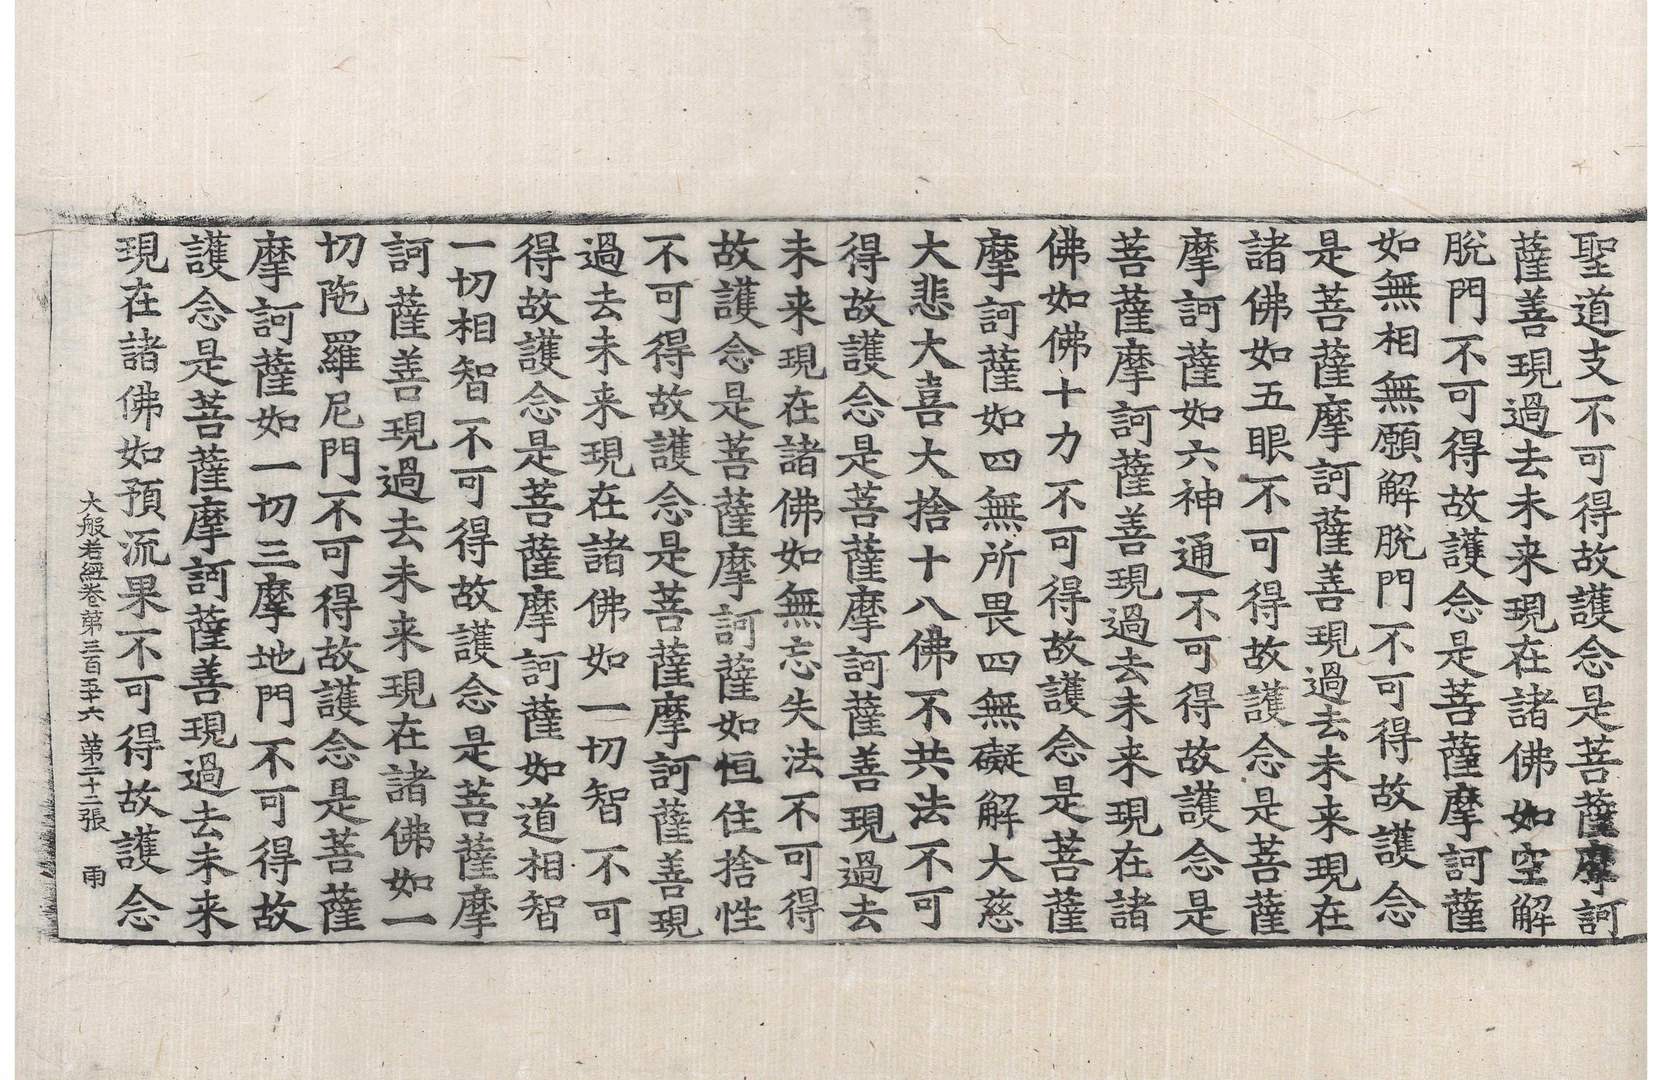 聖道支不可得故護念是菩薩摩訶
薩善現過去未来現在諸佛如空解
脫門不可得故護念是菩薩摩訶薩
如無相無願解脫門不可得故護念
是菩薩摩訶薩善現過去未来現在
諸佛如五眼不可得故護念是菩薩
摩訶薩如六神通不可得故護念是
菩薩摩訶薩善現過去未来現在諸
佛如佛十力不可得故護念是菩薩
摩訶薩如四無所畏四無礙解大慈
大悲大喜大捨十八佛不共法不可
得故護念是菩薩摩訶薩善現過去
未来現在諸佛如無忘失法不可得
故護念是菩薩摩訶薩如恒住捨性
不可得故護念是菩薩摩訶薩善現
過去未来現在諸佛如一切智不可
得故護念是菩薩摩訶薩如道相智
一切相智不可得故護念是菩薩摩
訶薩善現過去未来現在諸佛如一
切陁羅尼門不可得故護念是菩薩
摩訶薩如一切三摩地門不可得故
護念是菩薩摩訶薩善現過去未来
現在諸佛如預流果不可得故護念
大般若經卷第三百五十六 第二十二張 雨